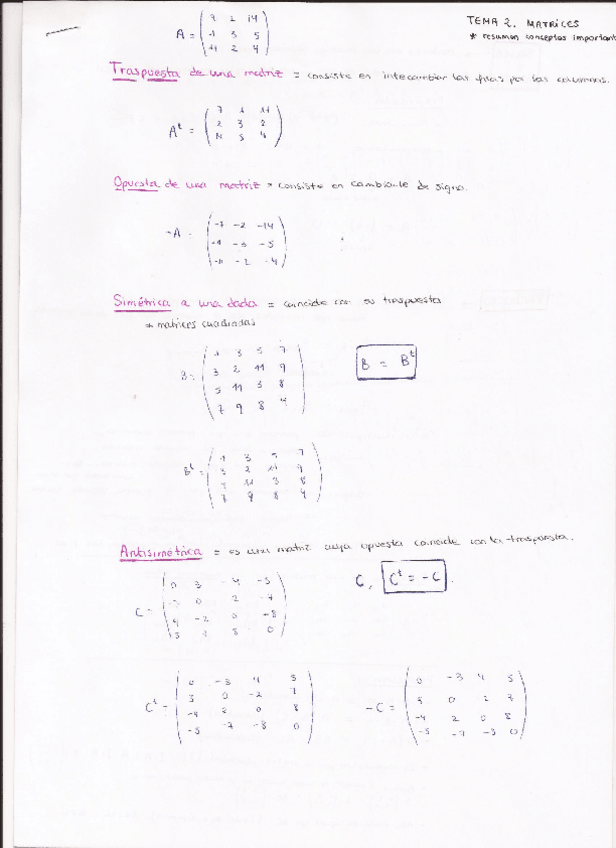 TEMA 2. MATRICES
* resumen conceptos important
A = ( 7 2 14
1 3 5
11 2 4 )
Traspuesta de una matriz = consiste en intercambiar las filas por las columnas.
Aᵗ = ( 7 1 11
2 3 2
14 5 4 )
Opuesta de una matriz = consiste en cambiarle de signo.
-A = ( -7 -2 -14
-1 -3 -5
-11 -2 -4 )
Simétrica a una dada = coincide con su traspuesta
⇒ matrices cuadradas
B = ( 1 3 5 7
3 2 11 9
5 11 3 8
7 9 8 4 )
B = Bᵗ
Bᵗ = ( 1 3 5 7
3 2 11 9
11 3 8
7 9 8 4 )
Antisimétrica = es una matriz cuya opuesta coincide con la traspuesta.
C = ( 0 3 -4 -5
0 2 -7
4 -2 0 -8
5 8 0 )
C, Cᵗ = -C.
Cᵗ = ( 0 -3 4 5
3 0 -2 7
-4 2 0 8
-5 -7 -8 0 )
-C = ( 0 -3 4 5
0 7
-4 2 0 8
-5 -7 0 )